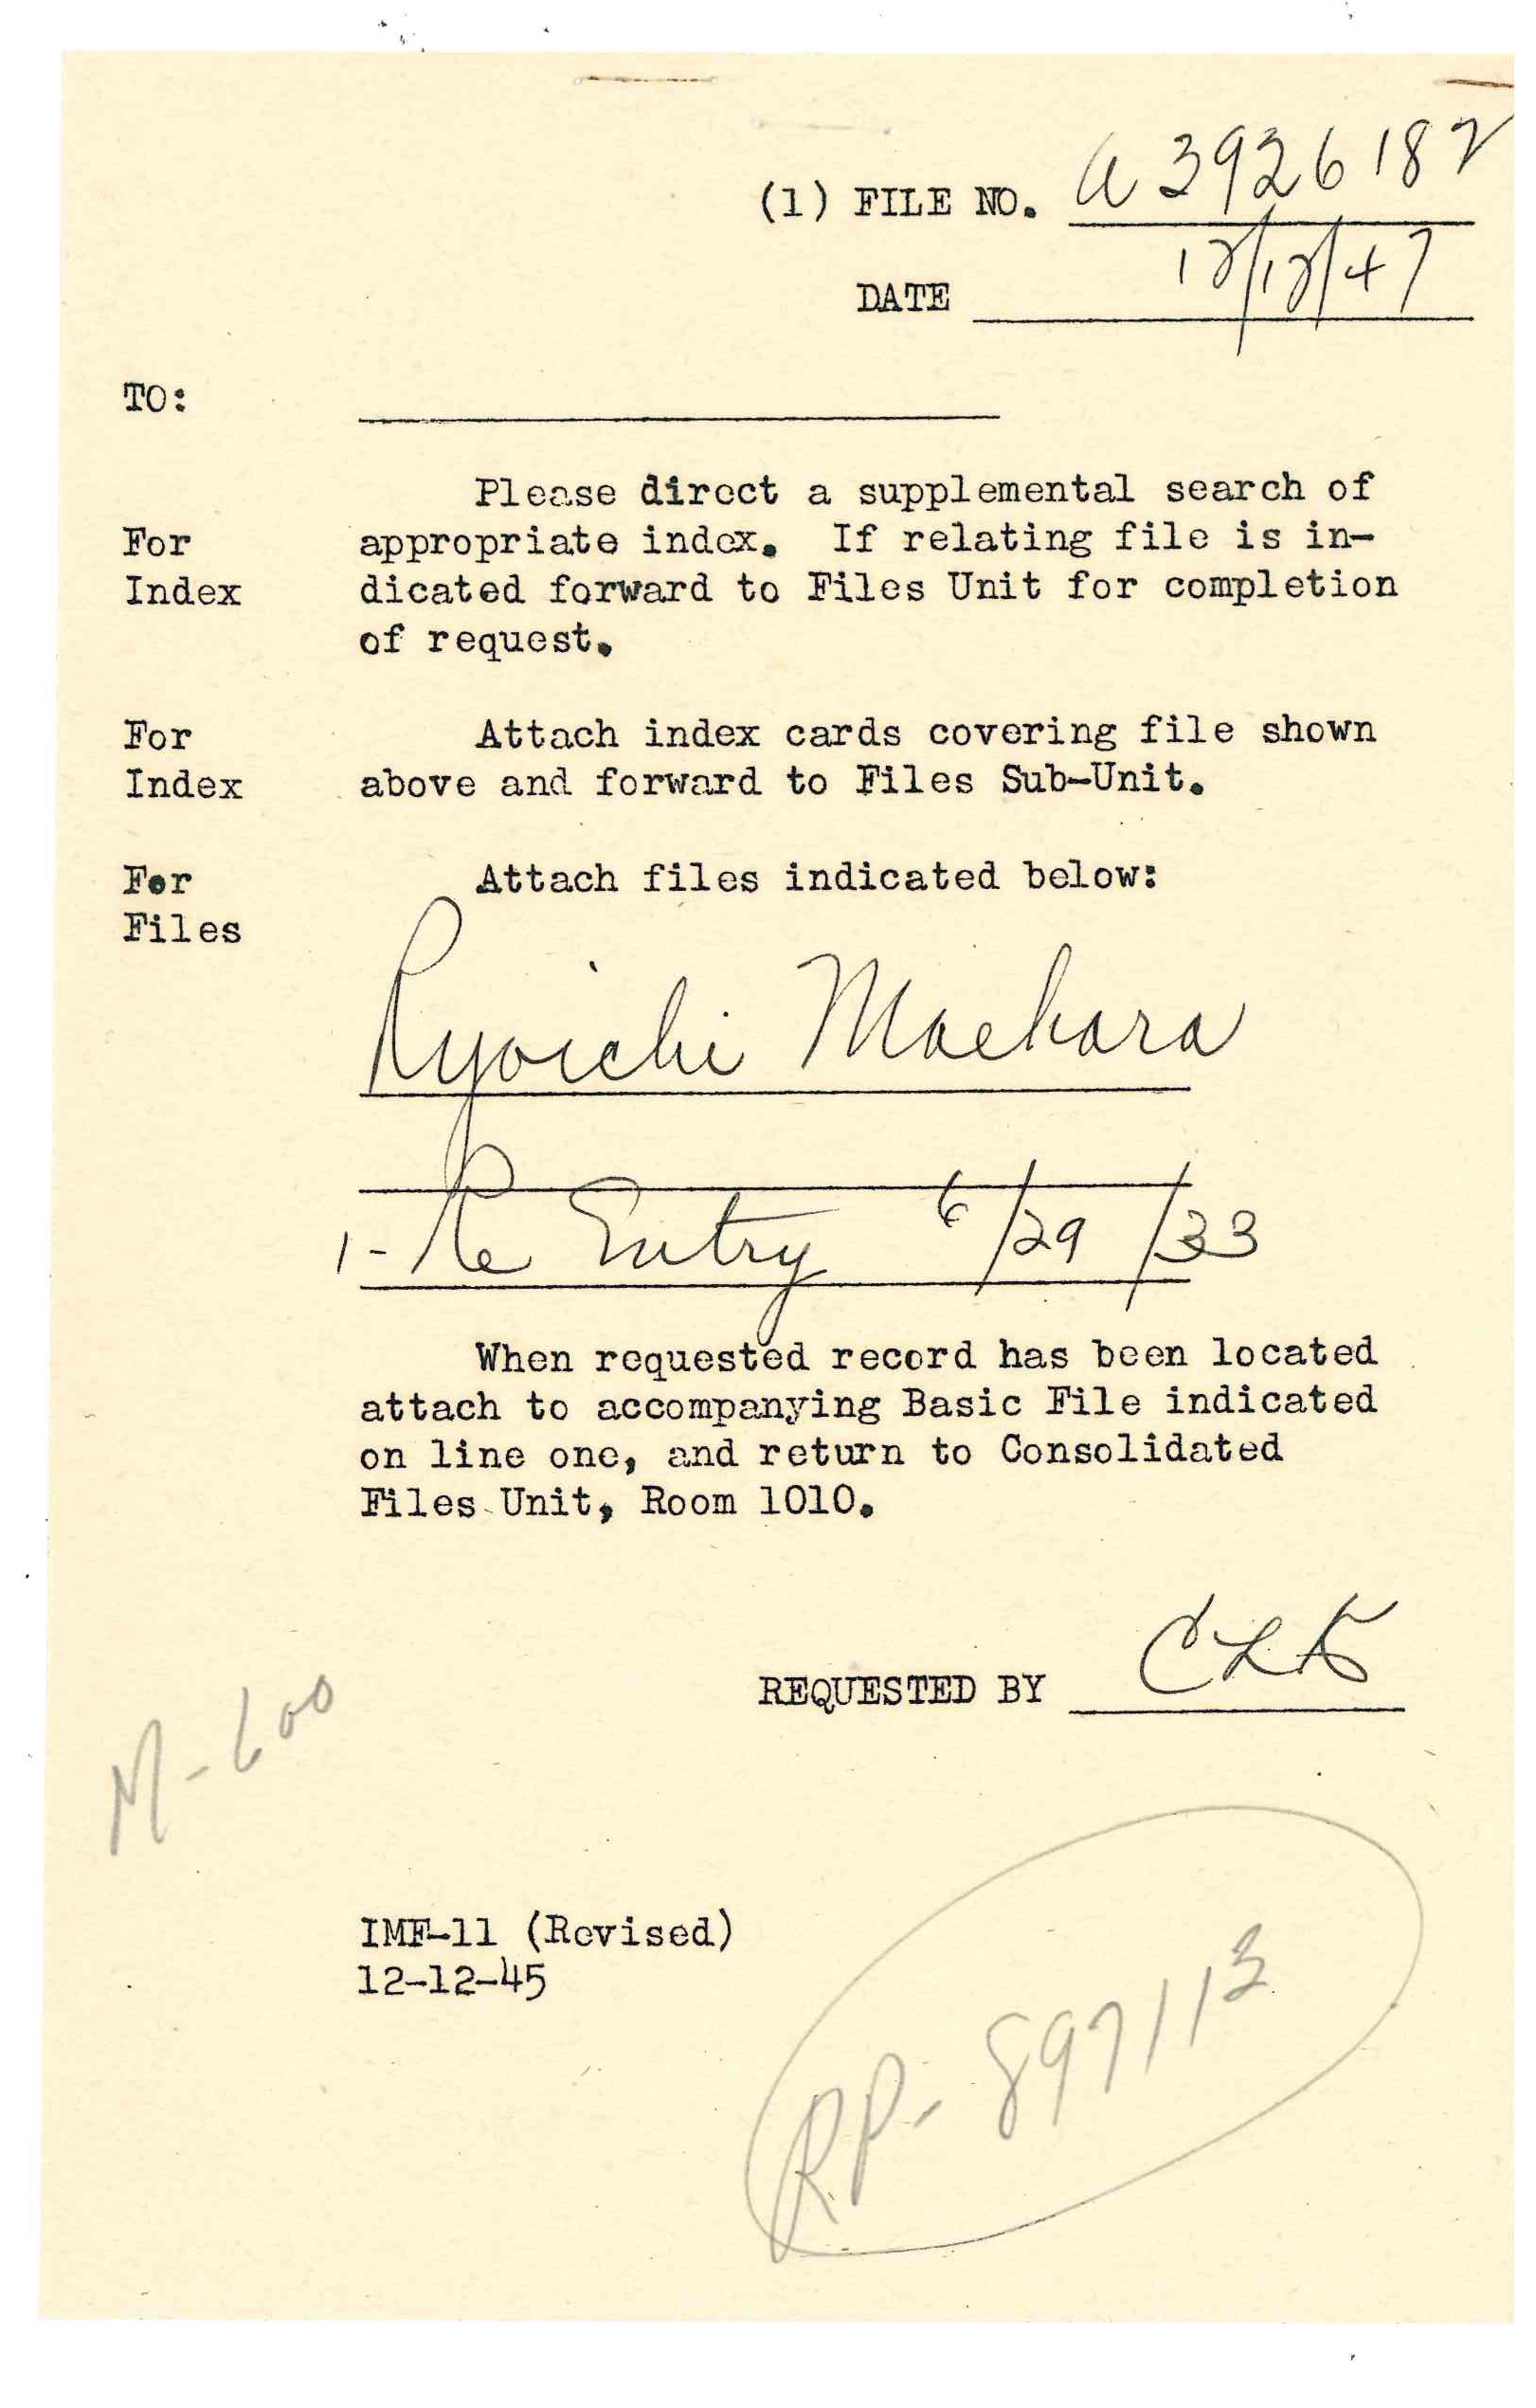 (1) FILE NO. a 3926182
DATE 12/12/47
TO:
Please direct a supplemental search of
For appropriate index. If relating file is in-
Index dicated forward to Files Unit for completion
of request.
For Attach index cards covering file shown
Index above and forward to Files Sub-Unit.
For Attach files indicated below:
Files
Ryoichi Maehara
1- Re Entry 6/29/33
When requested record has been located
attach to accompanying Basic File indicated
on line one, and return to Consolidated
Files Unit, Room 1010.
REQUESTED BY CLK
M-600
IMF-11 (Revised)
12-12-45
RP- 897113